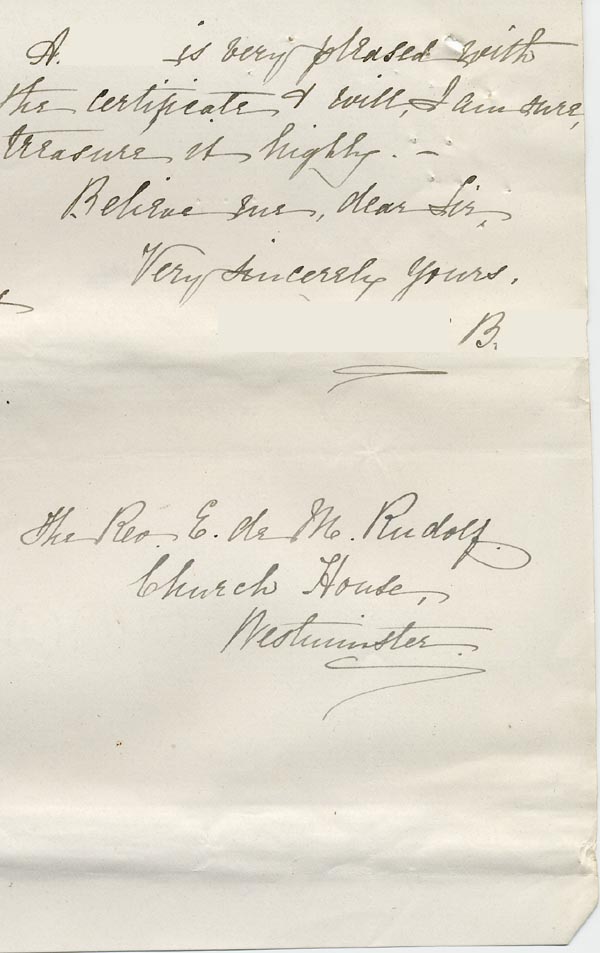 A. is very pleased with
the certificate & will, I am sure,
treasure it highly. –
Believe me, dear Sir,
Very sincerely yours.
B.
The Rev. E. de M. Rudolf.
Church House,
Westminster.